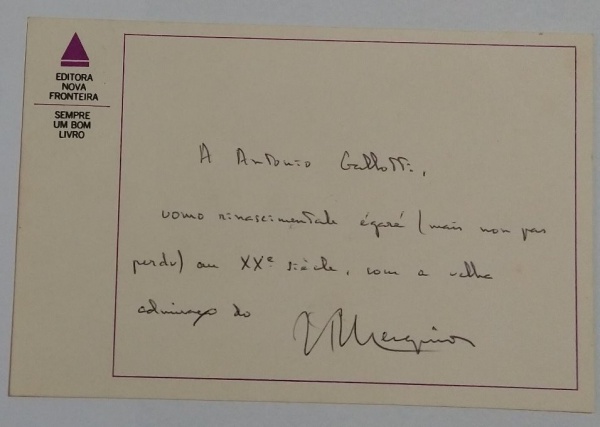 EDITORA
NOVA
FRONTEIRA
SEMPRE
UM BOM
LIVRO
A Antonio Gallotti,
uomo rinascimentale égaré (mais non pas
perdu) au XXe siècle, com a velha
admiração do
JGMerquior